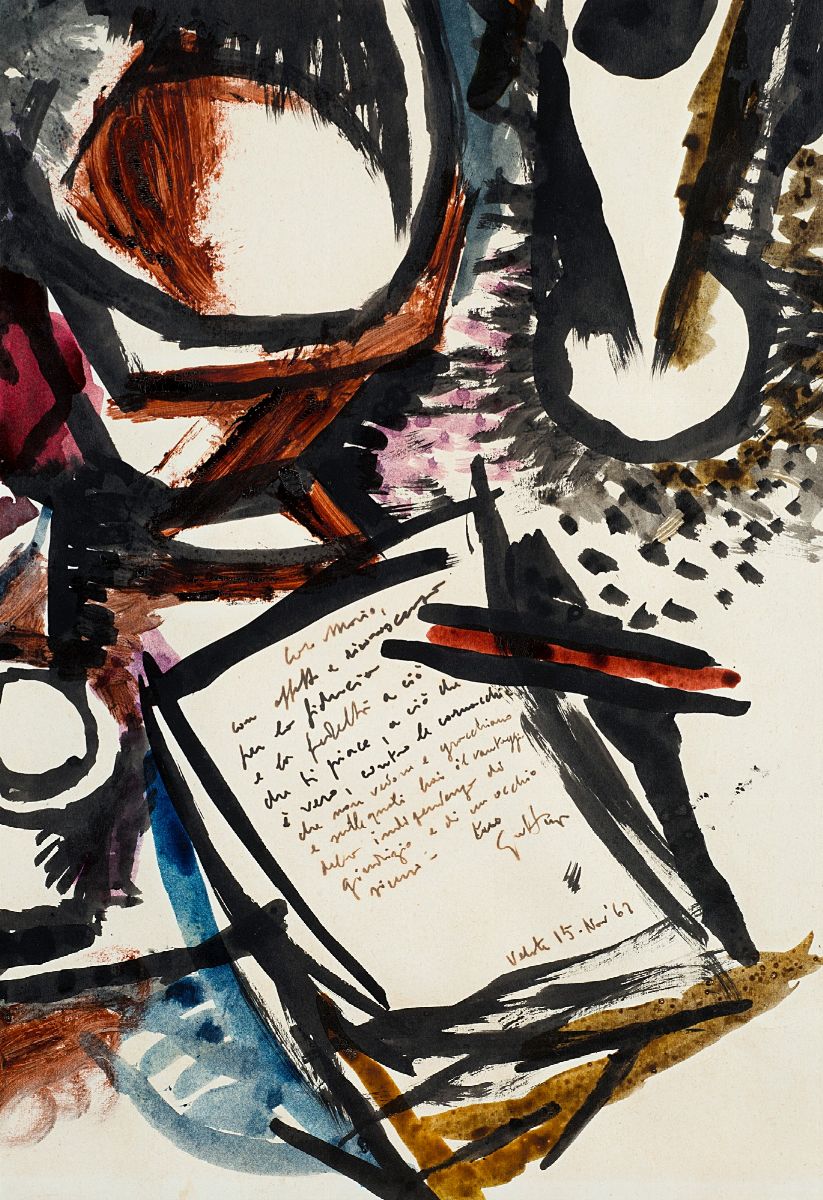 Caro Mario,
con affetto e riconoscenza
per la fiducia
e la fedeltà a ciò
che ti piace, a ciò che
è vero, contro le cornacchie
che non vedono e gracchiano
e sulle quali hai il vantaggio
della indipendenza di
giudizio e di un occhio
sicuro –
tuo
Guttuso
Velate 15. Nov '62